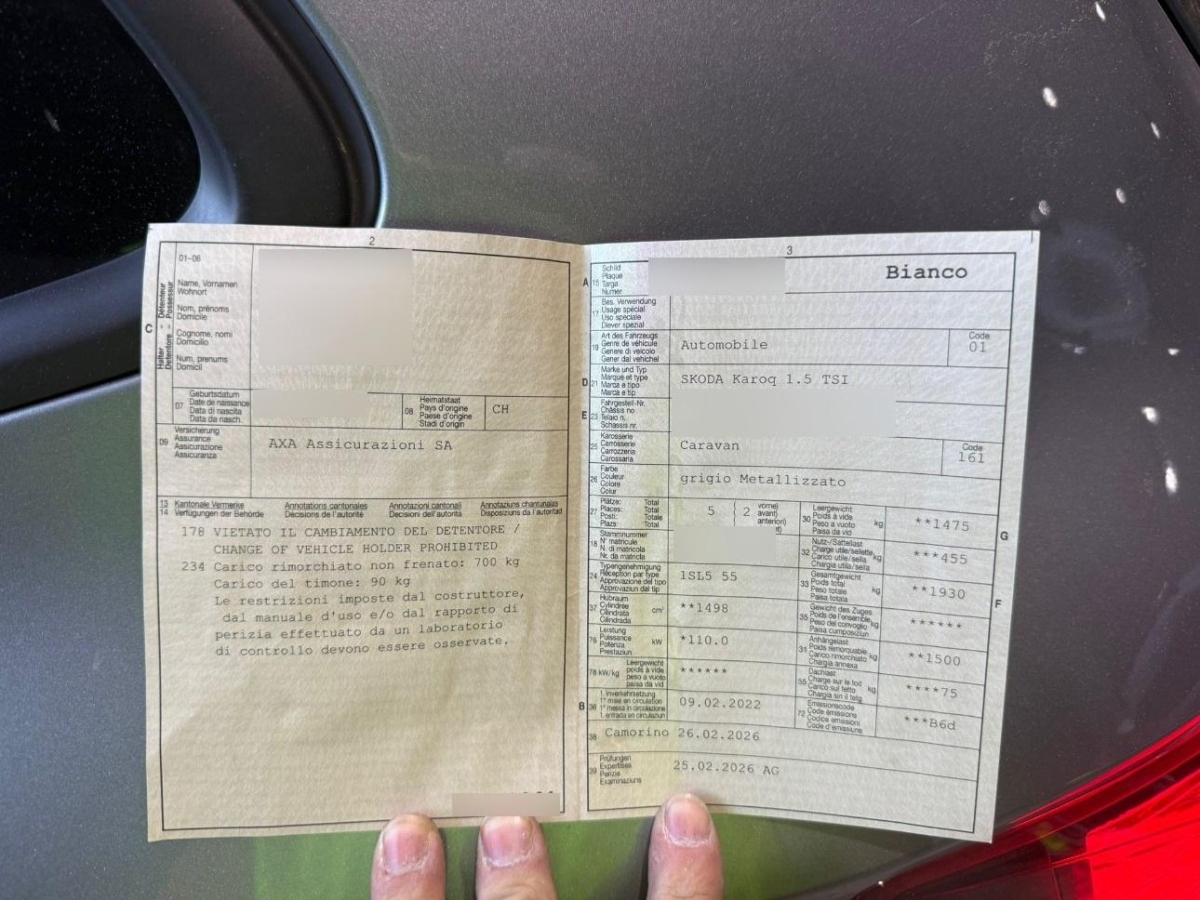 2
01-06
C
Halter - Detentore
Détenteur - Possessur
Name, Vornamen
Wohnort
Nom, prénoms
Domicile
Cognome, nomi
Domicilio
Num, prenums
Domicil
07
Geburtsdatum
Date de naissance
Data di nascita
Data da nasch.
08
Heimatstaat
Pays d'origine
Paese d'origine
Stadi d'origin
CH
09
Versicherung
Assurance
Assicurazione
Assicuranza
AXA Assicurazioni SA
13 Kantonale Vermerke Annotations cantonales Annotazioni cantonali Annotaziuns chantunalas
14 Verfügungen der Behörde Décisions de l'autorité Decisioni dell'autorità Disposiziuns da l'autoritad
178 VIETATO IL CAMBIAMENTO DEL DETENTORE /
CHANGE OF VEHICLE HOLDER PROHIBITED
234 Carico rimorchiato non frenato: 700 kg
Carico del timone: 90 kg
Le restrizioni imposte dal costruttore,
dal manuale d'uso e/o dal rapporto di
perizia effettuato da un laboratorio
di controllo devono essere osservate.
3
A
15
Schild
Plaque
Targa
Numer
Bianco
17
Bes. Verwendung
Usage spécial
Uso speciale
Diever spezial
19
Art des Fahrzeugs
Genre de véhicule
Genere di veicolo
Gener dal vehichel
Automobile
Code
01
D
21
Marke und Typ
Marque et type
Marca e tipo
Marca e tip
SKODA Karoq 1.5 TSI
E
23
Fahrgestell-Nr.
Châssis no
Telaio n.
Schassis nr.
25
Karosserie
Carrosserie
Carrozzeria
Carossaria
Caravan
Code
161
26
Farbe
Couleur
Colore
Colur
grigio Metallizzato
27
Plätze: Total
Places: Total
Posti: Totale
Plazs: Total
5
2
vorne)
avant)
anteriori)
18
Stammnummer
N° matricule
N. di matricola
Nr. da matricla
24
Typengenehmigung
Réception par type
Approvazione del tipo
Approvaziun dal tip
1SL5 55
37
Hubraum
Cylindrée
Cilindrata
Cilindrada
cm³
**1498
76
Leistung
Puissance
Potenza
Prestaziun
kW
*110.0
78 kW/kg
Leergewicht
poids à vide
peso a vuoto
paisa da vid
******
B
36
1. Inverkehrsetzung
1re mise en circulation
1a messa in circolazione
1. entrada en circulaziun
09.02.2022
38
Camorino 26.02.2026
39
Prüfungen
Expertises
Perizie
Examinaziuns
25.02.2026 AG
30
Leergewicht
Poids à vide
Peso a vuoto
Paisa da vid
kg
**1475
G
32
Nutz-/Sattellast
Charge utile/sellette
Carico utile/sella
Chargia utila/sella
kg
***455
33
Gesamtgewicht
Poids total
Peso totale
Paisa totala
kg
**1930
F
35
Gewicht des Zuges
Poids de l'ensemble
Peso del convoglio
Paisa cumposiziun
kg
******
31
Anhängelast
Poids remorquable
Carico rimorchiato
Chargia annexa
kg
**1500
55
Dachlast
Charge sur le toit
Carico sul tetto
Chargia sin il tetg
kg
****75
72
Emissionscode
Code émissions
Codice emissioni
Code d'emissiuns
***B6d